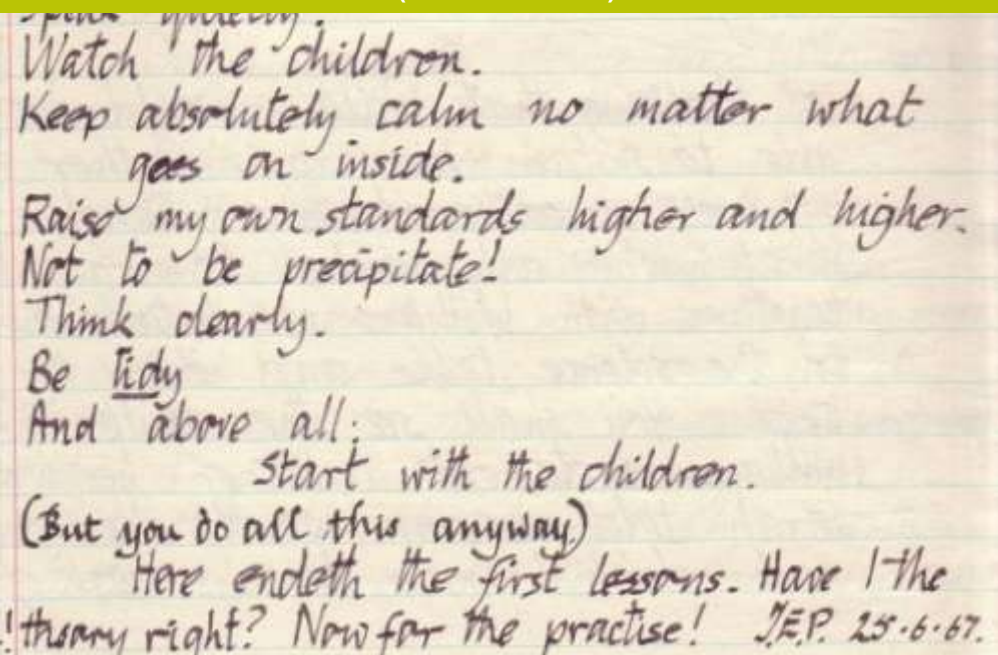 Watch the children.
Keep absolutely calm no matter what
goes on inside.
Raise my own standards higher and higher.
Not to be precipitate!
Think clearly.
Be tidy
And above all:
start with the children.
(But you do all this anyway)
Here endeth the first lessons. Have I the
! theory right? Now for the practise! J.E.P. 25.6.67.